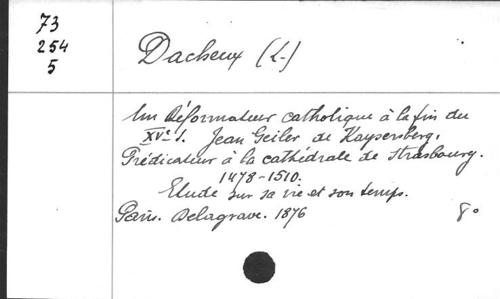 73
254
5
Dacheux (L.)
Un Réformateur catholique à la fin du
XVe s. Jean Geiler de Kaysersberg,
Prédicateur à la cathédrale de Strasbourg.
1478-1510.
Etude sur sa vie et son temps.
Paris. Delagrave. 1876 8°